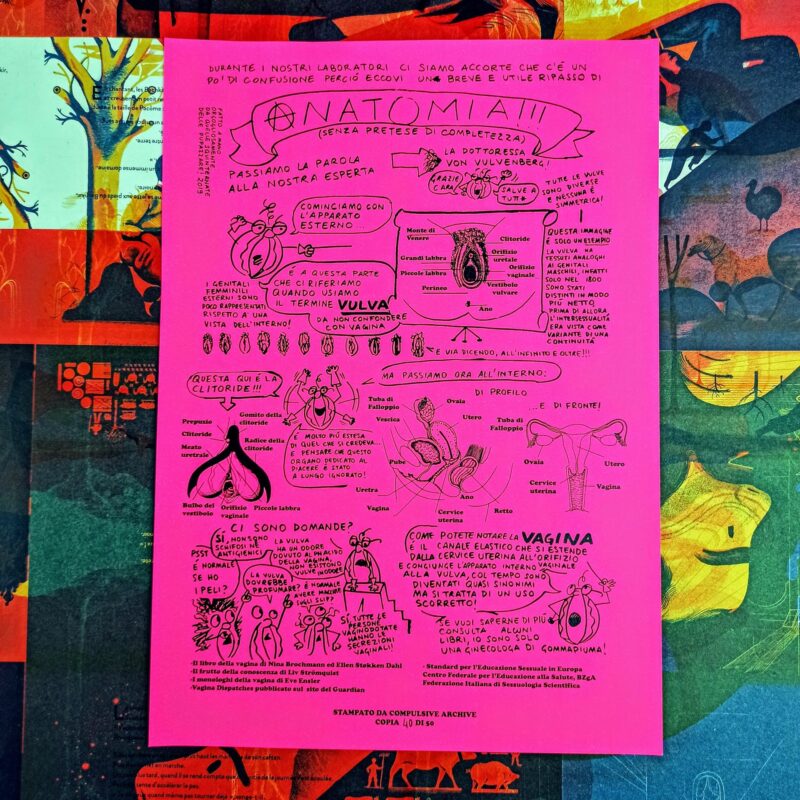 DURANTE I NOSTRI LABORATORI CI SIAMO ACCORTE CHE C'È UN
PO' DI CONFUSIONE PERCIÒ ECCOVI UN* BREVE E UTILE RIPASSO DI
ANATOMIA!!!
(SENZA PRETESE DI COMPLETEZZA)
FATTO A MANO
ORGOGLIOSAMENTE
DA QUELLE SQUINTERNATE
DELLE PUPAZZARE! 2019
PASSIAMO LA PAROLA
ALLA NOSTRA ESPERTA
LA DOTTORESSA
VON VULVENBERG!
GRAZIE
CARA
SALVE A
TUTT*
TUTTE LE VULVE
SONO DIVERSE
E NESSUNA È
SIMMETRICA!
COMINCIAMO CON
L'APPARATO
ESTERNO...
È A QUESTA PARTE
CHE CI RIFERIAMO
QUANDO USIAMO
IL TERMINE VULVA
DA NON CONFONDERE
CON VAGINA
I GENITALI
FEMMINILI
ESTERNI SONO
POCO RAPPRESENTATI
RISPETTO A UNA
VISTA DELL'INTERNO!
Monte di
Venere
Grandi labbra
Piccole labbra
Perineo
Clitoride
Orifizio
uretrale
Orifizio
vaginale
Vestibolo
vulvare
Ano
QUESTA IMMAGINE
È SOLO UN ESEMPIO
LA VULVA HA
TESSUTI ANALOGHI
AI GENITALI
MASCHILI, INFATTI
SOLO NEL 1800
SONO STATI
DISTINTI IN MODO
PIÙ NETTO
PRIMA DI ALLORA,
L'INTERSESSUALITÀ
ERA VISTA COME
VARIANTE DI UNA
CONTINUITÀ
E VIA DICENDO, ALL'INFINITO E OLTRE!!!
QUESTA QUI È LA
CLITORIDE!!!
MA PASSIAMO ORA ALL'INTERNO:
DI PROFILO
...E DI FRONTE!
Prepuzio
Clitoride
Meato
uretrale
Gomito della
clitoride
Radice della
clitoride
Bulbo del
vestibolo
Orifizio
vaginale
Piccole labbra
È MOLTO PIÙ ESTESA
DI QUEL CHE SI CREDEVA...
E PENSARE CHE QUESTO
ORGANO DEDICATO AL
PIACERE È STATO
A LUNGO IGNORATO!
Tuba di
Falloppio
Vescica
Pube
Uretra
Vagina
Ovaia
Utero
Ano
Cervice
uterina
Retto
Tuba di
Falloppio
Ovaia
Cervice
uterina
Utero
Vagina
CI SONO DOMANDE?
PSST
È NORMALE
SE HO
I PELI?
SÌ, NON SONO
SCHIFOSI NÉ
ANTIGIENICI
LA VULVA
DOVREBBE
PROFUMARE?
LA VULVA
HA UN ODORE
DOVUTO AL PH ACIDO
DELLA VAGINA,
NON ESISTONO
VULVE INODORE
È NORMALE
AVERE MACCHIE
SUGLI SLIP?
SÌ, TUTTE LE
PERSONE
VAGINODOTATE
HANNO LE
SECREZIONI
VAGINALI!
COME POTETE NOTARE LA VAGINA
È IL CANALE ELASTICO CHE SI ESTENDE
DALLA CERVICE UTERINA ALL'ORIFIZIO
VAGINALE
E CONGIUNGE L'APPARATO INTERNO
ALLA VULVA, COL TEMPO SONO
DIVENTATI QUASI SINONIMI
MA SI TRATTA DI UN USO
SCORRETTO!
SE VUOI SAPERNE DI PIÙ
CONSULTA ALCUNI
LIBRI, IO SONO SOLO
UNA GINECOLOGA DI GOMMAPIUMA!
-Il libro della vagina di Nina Brochmann ed Ellen Støkken Dahl
-Il frutto della conoscenza di Liv Strömquist
-I monologhi della vagina di Eve Ensler
-Vagina Dispatches pubblicato sul sito del Guardian
- Standard per l'Educazione Sessuale in Europa
Centro Federale per l'Educazione alla Salute, BZgA
Federazione Italiana di Sessuologia Scientifica
STAMPATO DA COMPULSIVE ARCHIVE
COPIA 40 DI 50